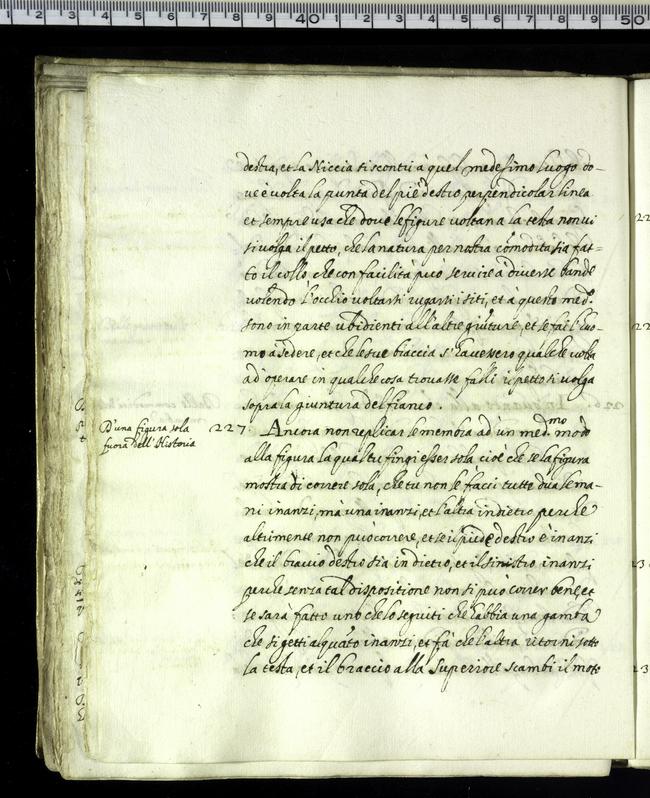 destra, et la Niccia si scontri à quel medesimo luogo do-
ve è volta la punta del piè destro perpendicolar linea
et sempre usa che dove le figure voltan a la testa non vi
si volga il petto, che la natura per nostra comodità ha fat-
to il collo che con facilità può servire a diverse bande
volendo l'occhio voltarsi i siti, et à questo med.º
sono in parte ubidienti all'altre giūture, et se fai l'huo-
mo a sedere, et che le sue braccia s'havessero qualche volta
ad operare in qualche cosa fa che il petto si volga
sopra la giuntura del fianco.
D'una figura sola
fuora dell'Historia
227. Ancora non replicar le membra ad un med.mo modo
alla figura la qual tu fingi esser sola cioè che se la figura
mostra di correre sola, che tu non le facci tutte dua le ma-
ni inanzi, mà una inanzi, et l'altra indietro perche
altrimente non può correre, et se il piede destro è inanzi
che il braccio destro stia in dietro, et il sinistro inanzi
perche senza tal dispositione non si può correr bene, et
se sarà fatto uno che lo seguiti che habbia una gamba
che si getti alquāto inanzi, et fà che l'altra ritorni sotto
la testa, et il braccio alla superiore scambi il moto